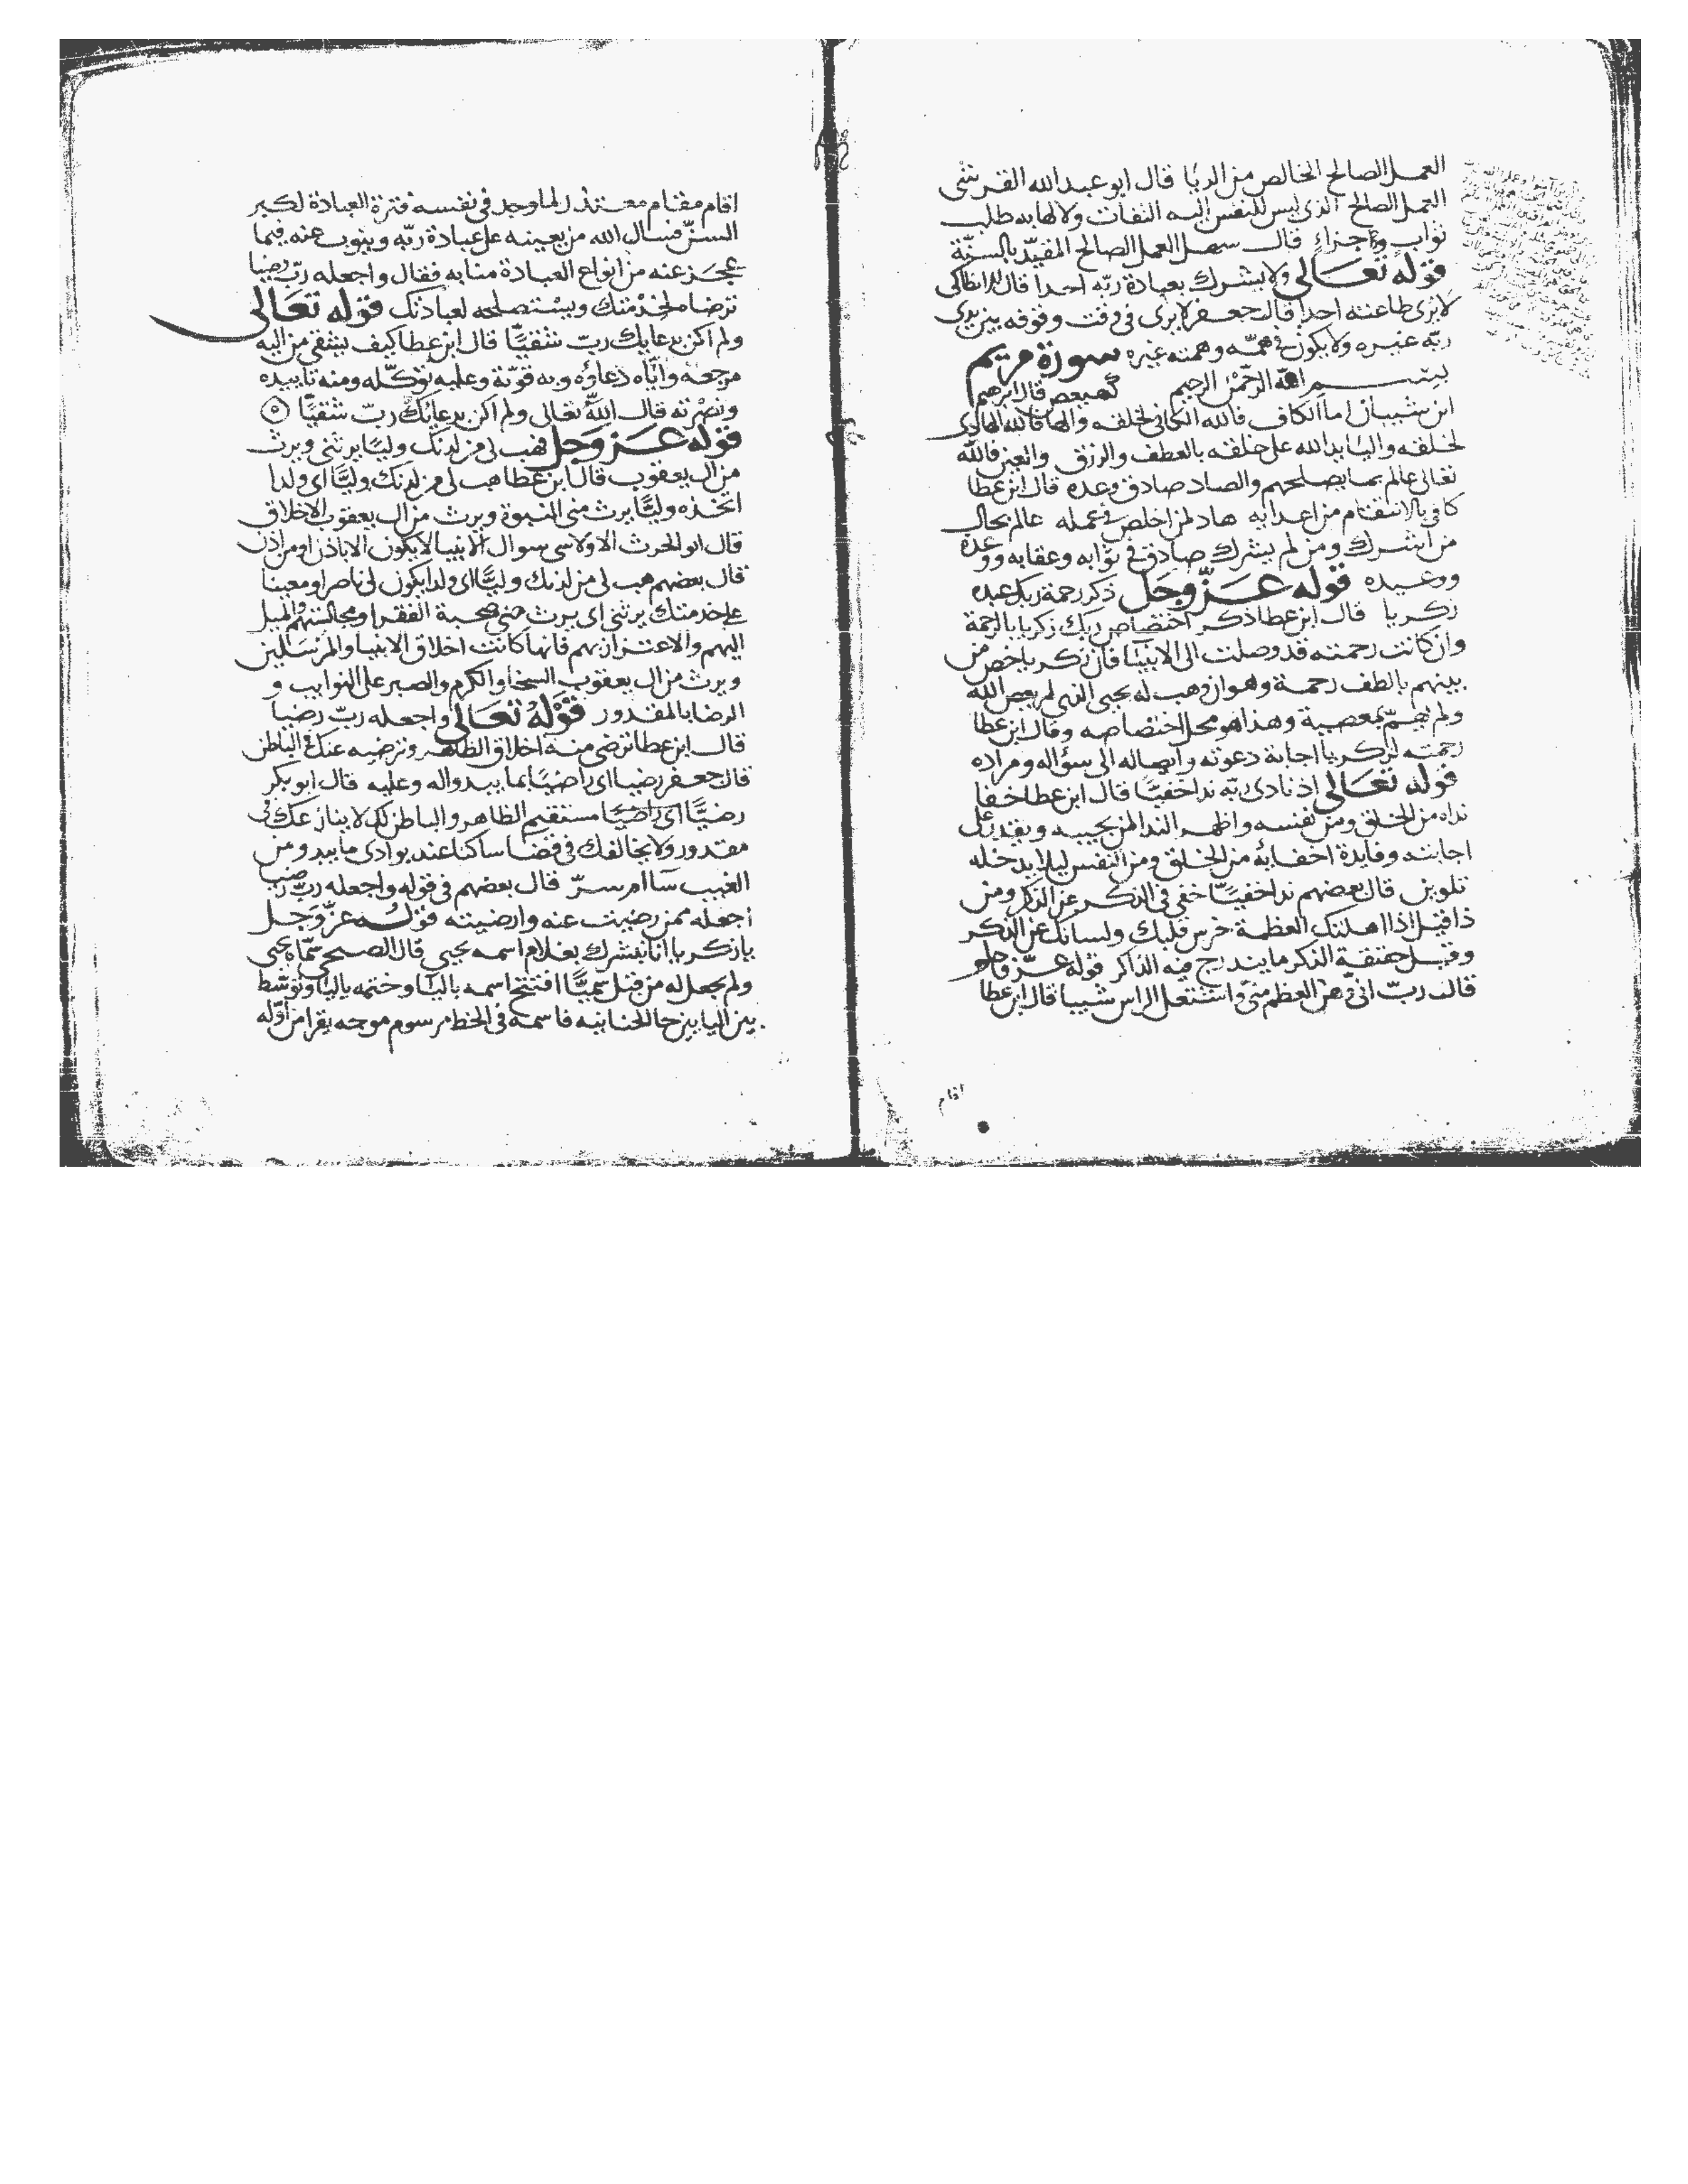 العمل الصالح الخالص من الريا قال ابو عبد الله القرشى
العمل الصالح الذى ليس للنفس اليه التفات ولا لها به طلب
ثواب وجزاء قال سهل العمل الصالح المقيد بالسنة
قوله تعالى ولا يشرك بعبادة ربه احدا قال الانطاكى
لا يرى طاعته احدا قال جعفر لا يرى فى وقت وقوفه بين يدى
ربه غيره ولا يكون فى همه وهمته غيره سورة مريم
بسم الله الرحمن الرحيم كهيعص قال ابرهيم
ابن شيبان اما الكاف فالله الكافى لخلقه والها فالله الهادى
لخلقه واليا يد الله على خلقه بالعطف والرزق والعين فالله
تعالى عالم بما يصلحهم والصاد صادق وعده قال ابن عطا
كافى بالانتقام من اعدايه هاد لمن اخلص فى عمله عالم بحال
من اشرك ومن لم يشرك صادق فى ثوابه وعقابه ووعده
ووعيده قوله عز وجل ذكر رحمة ربك عبده
زكريا قال ابن عطا ذكر اختصاص ربك زكريا بالرحمة
وان كانت رحمته قد وصلت الى الانبيا فان زكريا خص من
بينهم بالطف رحمة وهو ان وهب له يحيى الذى لم يعص الله
ولم يهم بمعصية وهذا هو محل اختصاصه وقال ابن عطا
رحمته لزكريا اجابة دعوته وايصاله الى سؤاله ومراده
قوله تعالى اذ نادى ربه ندا خفيا قال ابن عطا اخفا
نداه من الخلق ومن نفسه واظهر الندا لمن يجيبه ويقدر على
اجابته وفايدة اخفائه من الخلق ومن النفس ليلا يدخله
تلوين قال بعضهم ندا خفيا خفى فى الذكر عن الذكر ومن
ذا قيل اذا اهلتك العظمة خرس قلبك ولسانك عن الذكر
وقيل حقيقة الذكر ما يندرج فيه الذاكر قوله عز وجل
قال رب انى وهن العظم منى واشتعل الراس شيبا قال ابن عطا
اقام
اقام مقام معتذر لما وجد فى نفسه فترة العبادة لكبر
السن فسال الله من يعينه على عبادة ربه وينوب عنه فيما
عجز عنه من انواع العبادة منابه فقال واجعله رب رضيا
ترضاه لخدمتك ويستصلحه لعبادتك قوله تعالى
ولم اكن بدعايك رب شقيا قال ابن عطا كيف يشقى من اليه
مرجعه واياه دعاؤه وبه قوته وعليه توكله ومنه تاييده
ونصرته قال الله تعالى ولم اكن بدعائك رب شقيا
قوله عز وجل فهب لى من لدنك وليا يرثنى ويرث
من ال يعقوب قال ابن عطا هب لى من لدنك وليا اى ولدا
اتخذه وليا يرث منى النبوة ويرث من ال يعقوب الاخلاق
قال ابو الحرث الاولاسى سوال الانبيا لا يكون الا باذن او من اذن
قال بعضهم هب لى من لدنك وليا اى ولدا يكون لى ناصرا ومعينا
على خدمتك يرثنى اى يرث منى صحبة الفقرا ومجالستهم والميل
اليهم والاعتزاز بهم فانها كانت اخلاق الانبيا والمرسلين
ويرث من ال يعقوب السخا والكرم والصبر على النوايب و
الرضا بالمقدور قوله تعالى واجعله رب رضيا
قال ابن عطا ترضى منه اخلاق الظاهر وترضيه عنك فى الباطن
قال جعفر رضيا اى راضيا بما يبدو له وعليه قال ابو بكر
رضيا اى راضيا مستقيم الظاهر والباطن لك لا ينازعك فى
مقدور ولا يخالفك فى قضا ساكنا عند بوادى ما يبدو من
الغيب سا ام سر قال بعضهم فى قوله واجعله رب رضيا
اجعله ممن رضيت عنه وارضيته قوله عز وجل
يا زكريا انا نبشرك بغلام اسمه يحيى قال الصبيحى سماه يحيى
ولم يجعل له من قبل سميا افتتح اسمه باليا وختمه باليا وتوسط
بين اليا بين حا الحنانيه فاسمه فى الخط مرسوم موجه يقرا من اوله